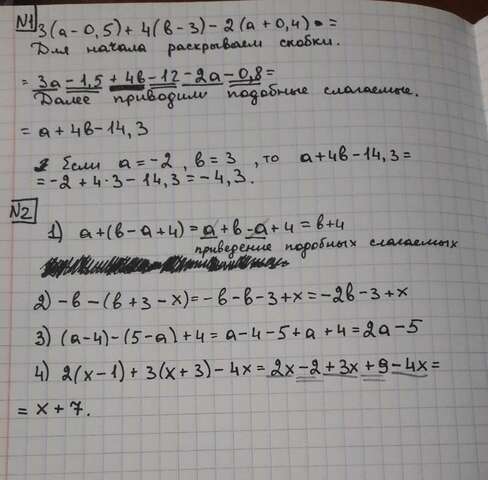 №1 3(a-0,5)+4(в-3)-2(a+0,4)=
Для начала раскрываем скобки.
= 3a-1,5+4в-12-2a-0,8=
Далее приводим подобные слагаемые.
= a+4в-14,3
Если a=-2, в=3, то a+4в-14,3=
=-2+4·3-14,3=-4,3.
№2
1) a+(в-a+4)=a+в-a+4=в+4
приведение подобных слагаемых
2) -в-(в+3-x)=-в-в-3+x=-2в-3+x
3) (a-4)-(5-a)+4=a-4-5+a+4=2a-5
4) 2(x-1)+3(x+3)-4x=2x-2+3x+9-4x=
= x+7.